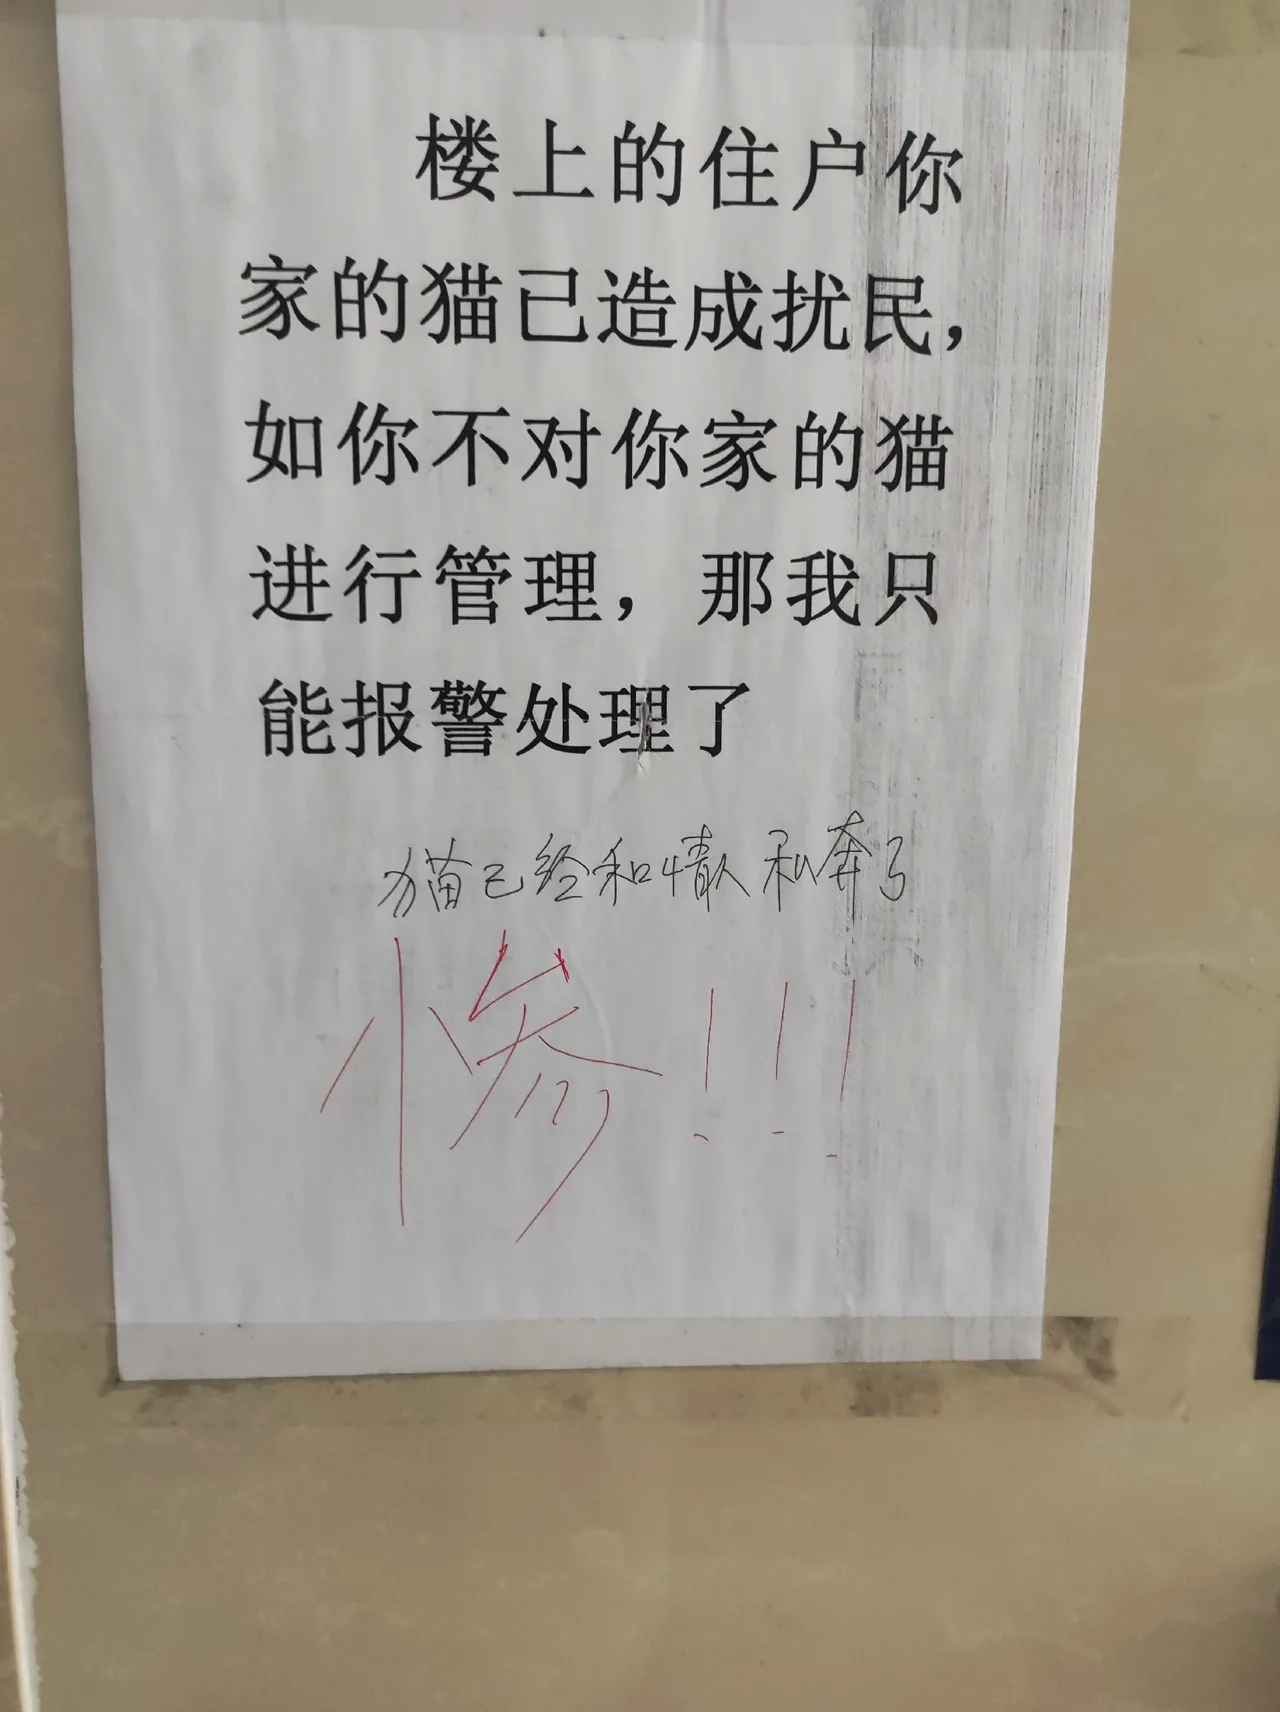 楼上的住户你
家的猫已造成扰民，
如你不对你家的猫
进行管理，那我只
能报警处理了
猫已经和情人私奔了
惨!!!